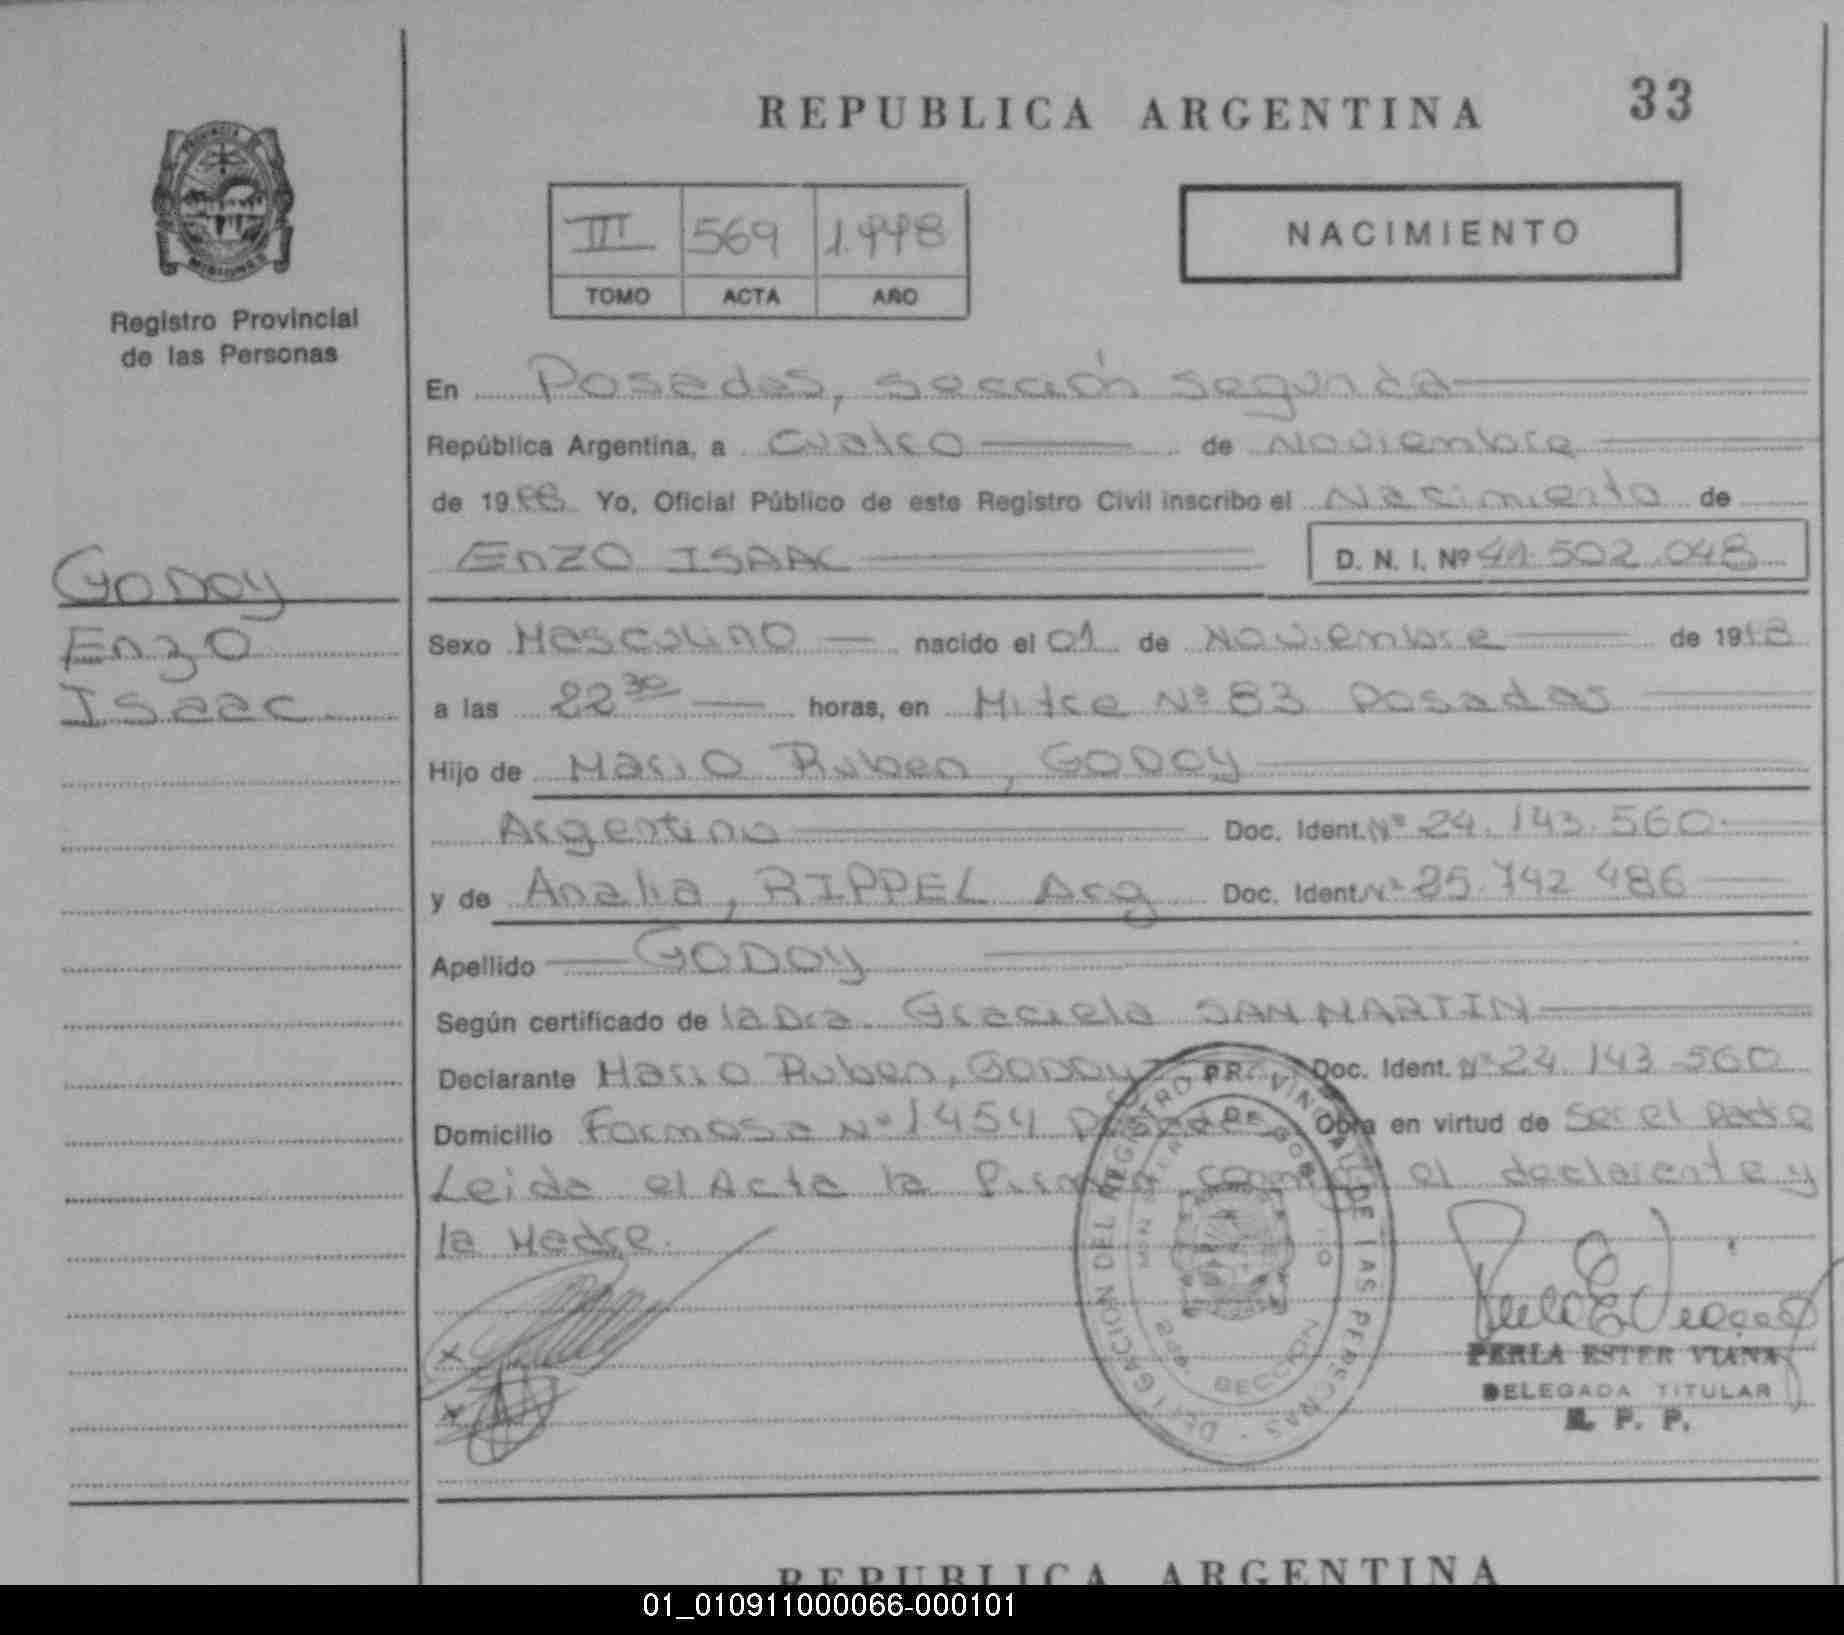 REPUBLICA ARGENTINA 33
PROVINCIA
MISIONES
Registro Provincial
de las Personas
III 569 1.998
TOMO ACTA AÑO
NACIMIENTO
En Posadas, sección segunda
República Argentina, a Cuatro de Noviembre
de 1998 Yo, Oficial Público de este Registro Civil inscribo el Nacimiento de
ENZO ISAAC D. N. I. Nº 41.502.048
GODOY
Enzo
Isaac
Sexo Masculino nacido el 01 de Noviembre de 1998
a las 22 30 horas, en Mitre Nº 83 Posadas
Hijo de Mario Ruben, GODOY
Argentino Doc. Ident. Nº 24.143.560
y de Analia, RIPPEL Arg Doc. Ident. Nº 25.742.486
Apellido GODOY
Según certificado de la Dra. Graciela SAN MARTIN
Declarante Mario Ruben, GODOY Doc. Ident. Nº 24.143.560
Domicilio Formosa Nº 1454 Posadas Obra en virtud de ser el Padre
Leida el Acta la firman conmigo el declarante y
la Madre.
DELEGACION DEL REGISTRO PROVINCIAL DE LAS PERSONAS
DE GOBIERNO
SECCION
PERLA ESTER VIANA
DELEGADA TITULAR
R. P. P.
REPUBLICA ARGENTINA
01_010911000066-000101